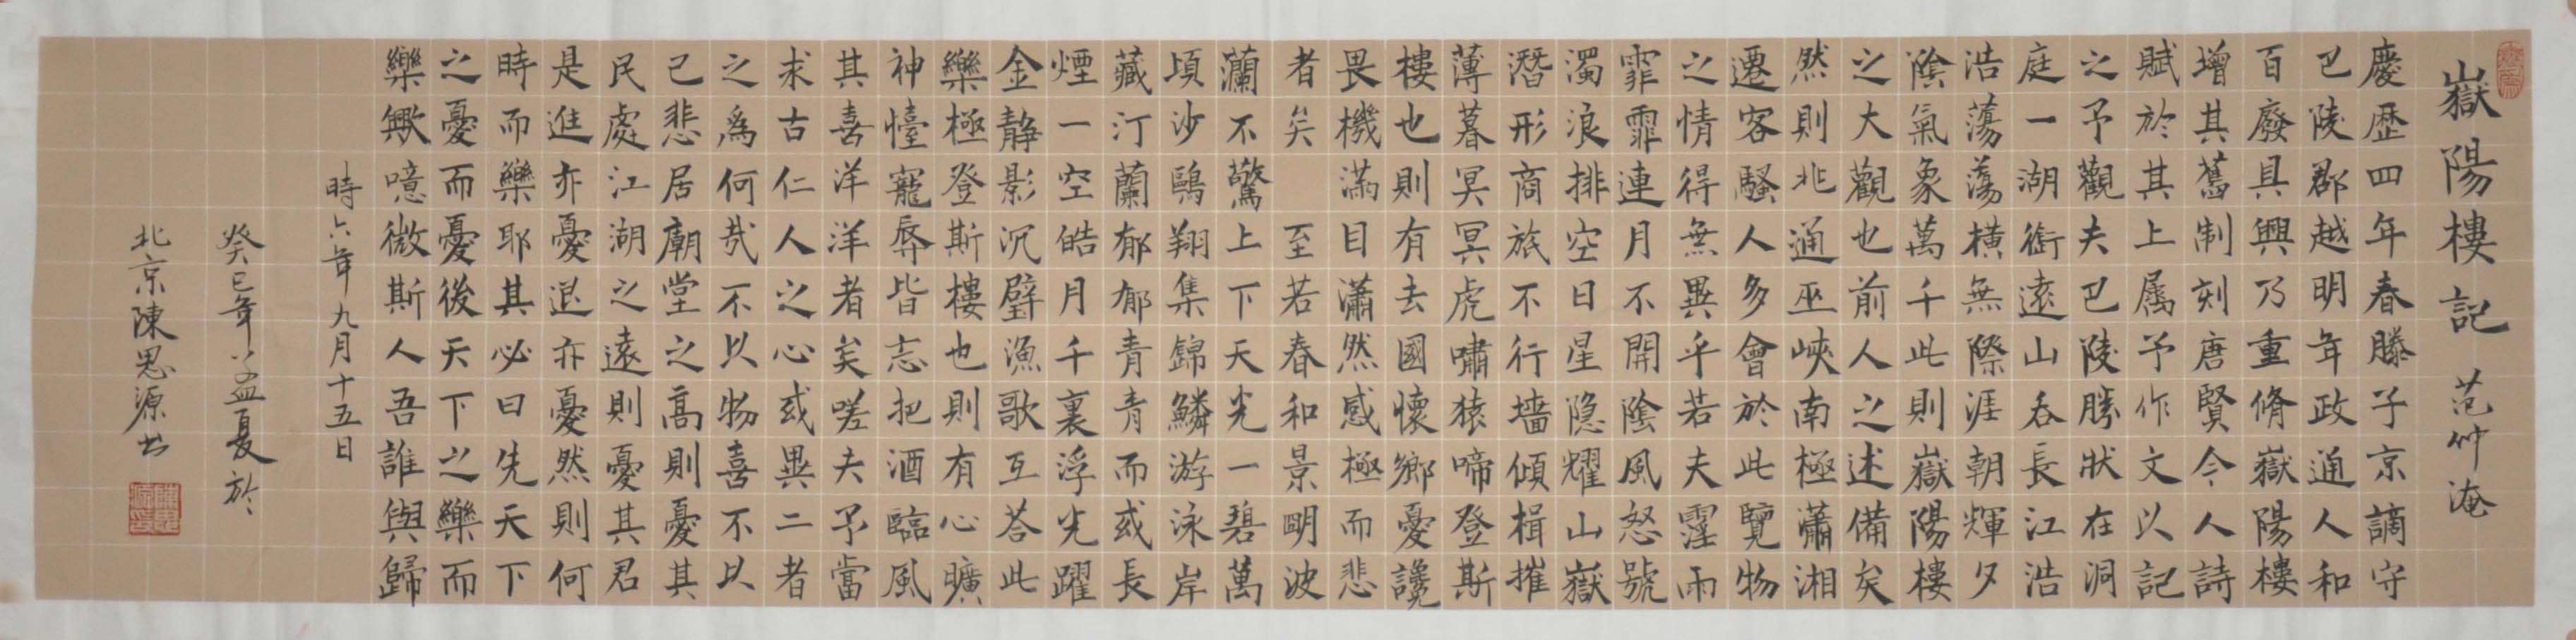 嶽陽樓記 范仲淹
慶歷四年春滕子京謫守
巴陵郡越明年政通人和
百廢具興乃重脩嶽陽樓
增其舊制刻唐賢今人詩
賦於其上属予作文以記
之予觀夫巴陵勝狀在洞
庭一湖銜遠山吞長江浩
浩蕩蕩橫無際涯朝輝夕
陰氣象萬千此則嶽陽樓
之大觀也前人之述備矣
然則北通巫峽南極瀟湘
遷客騷人多會於此覽物
之情得無異乎若夫霪雨
霏霏連月不開陰風怒號
濁浪排空日星隐耀山嶽
潛形商旅不行墻傾楫摧
薄暮冥冥虎嘯猿啼登斯
樓也則有去國懷鄉憂讒
畏機滿目瀟然感極而悲
者矣 至若春和景明波
瀾不驚上下天光一碧萬
頃沙鷗翔集錦鱗游泳岸
藏汀蘭郁郁青青而或長
煙一空皓月千裏浮光躍
金静影沉璧漁歌互荅此
樂極登斯樓也則有心曠
神懛寵辱皆志把酒臨風
其喜洋洋者矣嗟夫予當
求古仁人之心或異二者
之為何哉不以物喜不以
己悲居廟堂之高則憂其
民處江湖之遠則憂其君
是進亦憂退亦憂然則何
時而樂耶其必曰先天下
之憂而憂後天下之樂而
樂歟噫微斯人吾誰與歸
時六年九月十五日
癸巳年孟夏於
北京陳思源书